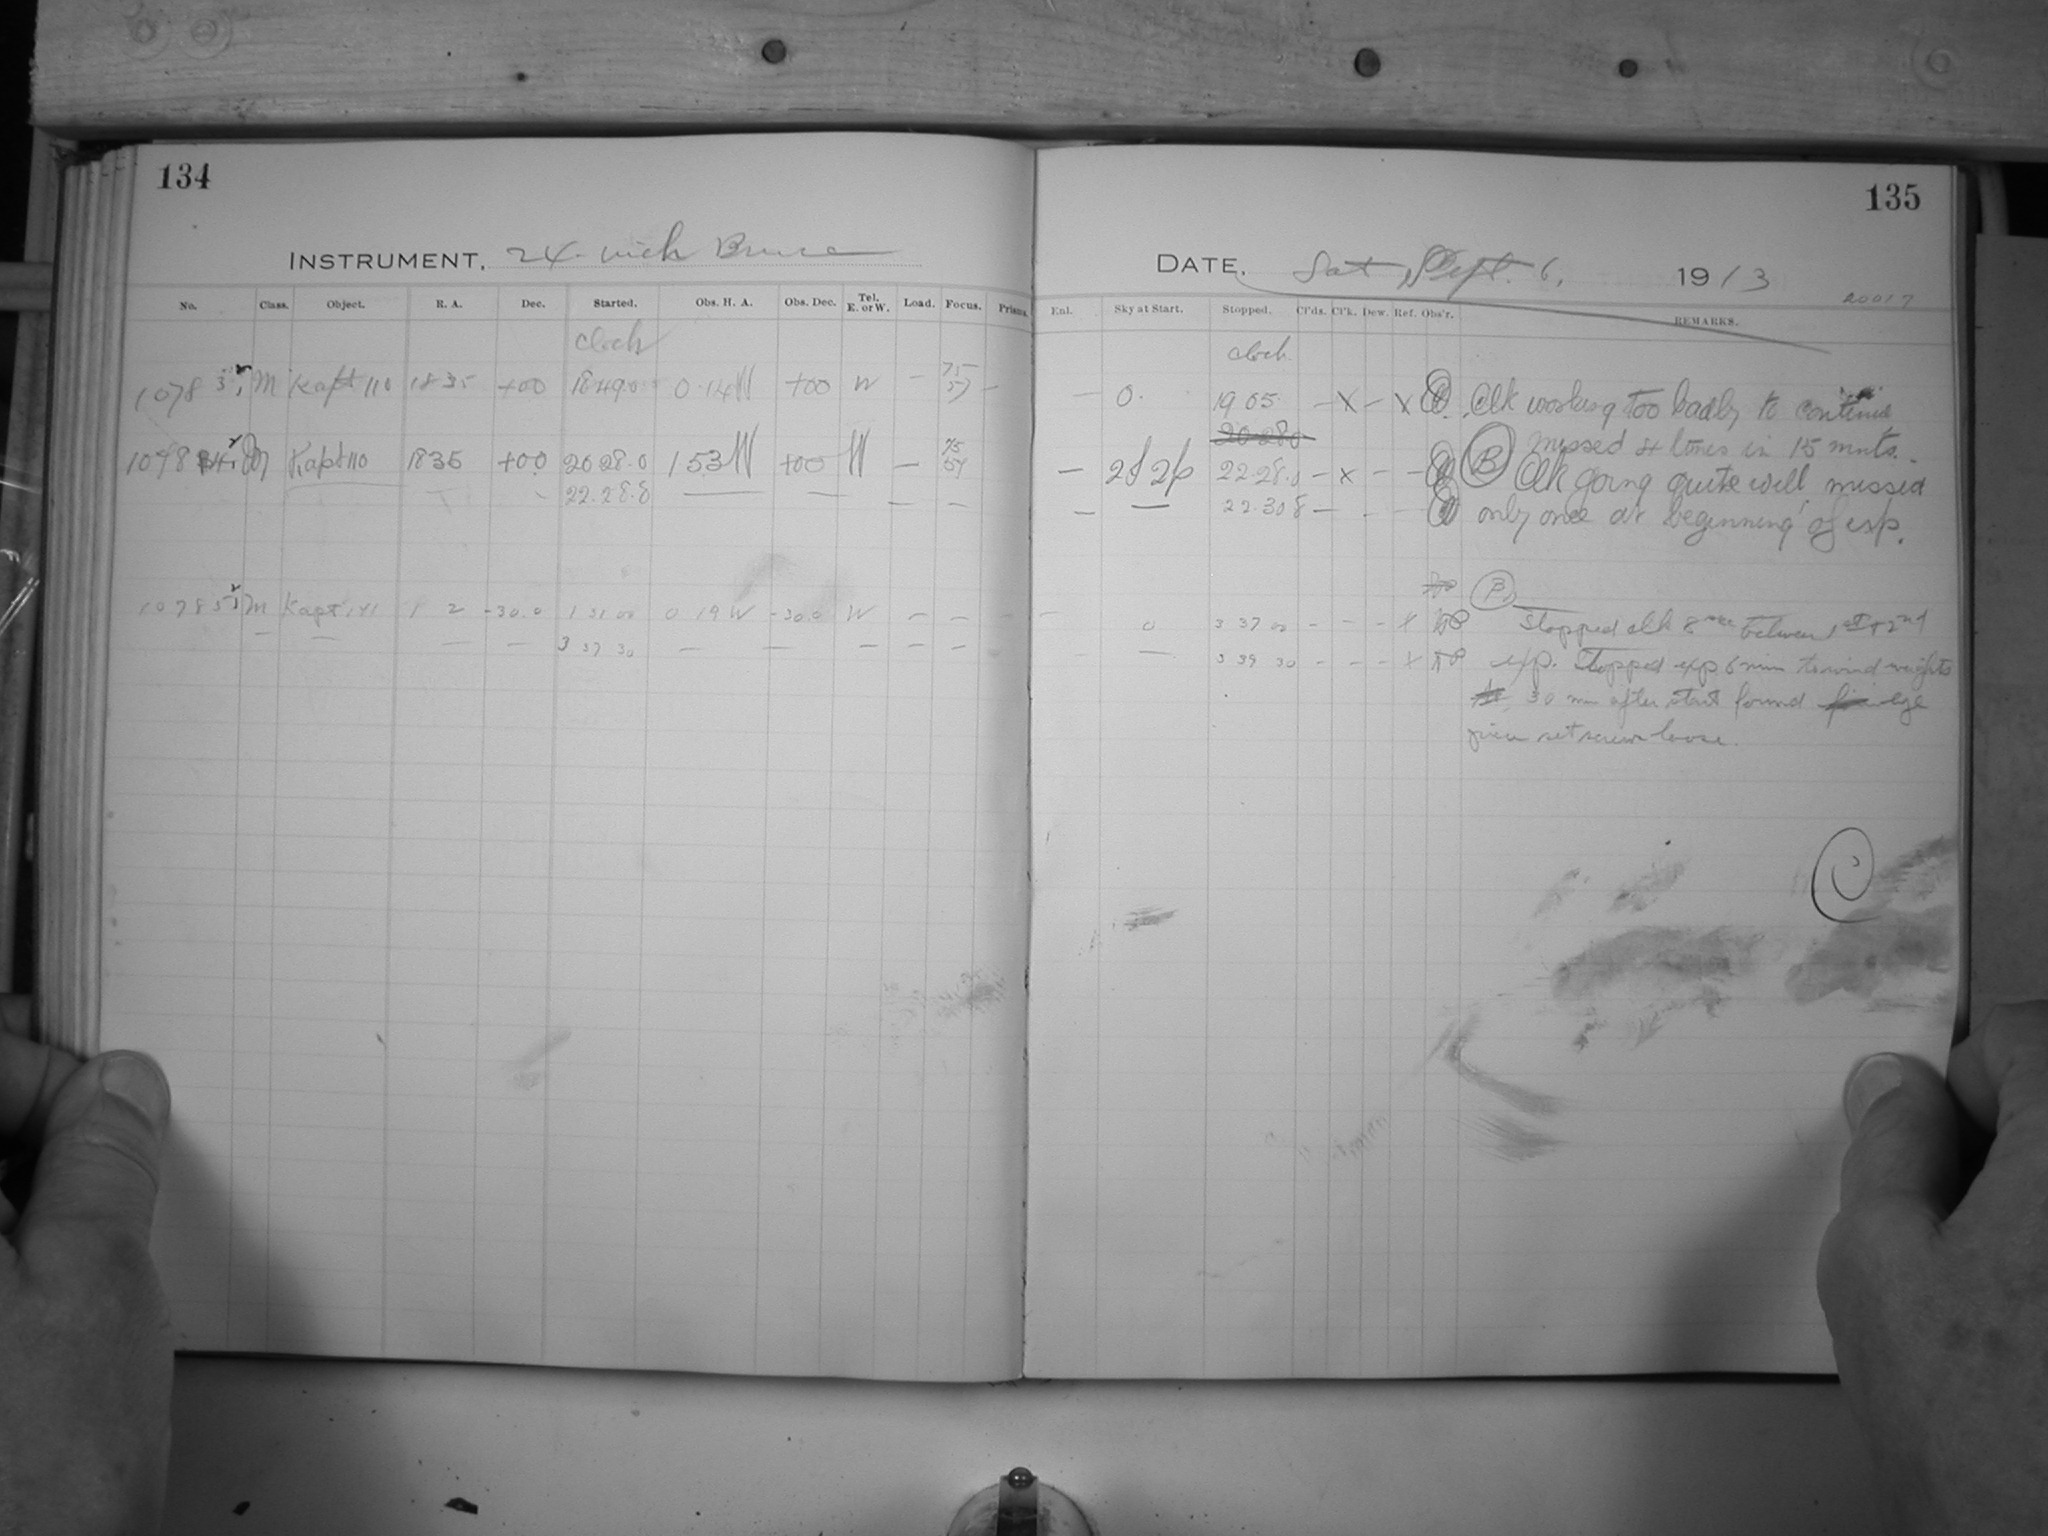 134
INSTRUMENT. 24-inch Bruce
No. Class. Object. R. A. Dec. Started. Obs. H. A. Obs. Dec. Tel. E. or W. Load. Focus. Prisms.
clock
1078 M Kapt 110 1835 +00 18 49.0 0.14 W +00 W — 75 57 —
1098 Kapt 110 1835 +00 20 28.0 1 53 W +00 W — 75 54
22.28.8 — — — —
M Kapt 1 2 -30.0 1 31 00 0 19 W -30.0 W — — —
— — — — 3 37 30 — — — — —
135
DATE. Sat, Sept. 6, 1913
20017
Enl. Sky at Start. Stopped. Cl'ds. Cl'k. Dew. Ref. Obs'r. REMARKS.
clock
— 0. 19 05 — X — X Clk working too badly to continue
20 28 0 missed 4 times in 15 mnts.
— 22.28.0 — x — — B Clk going quite well missed
— — 22.30 8 — only once at beginning of exp.
B
0 3 37 00 - - - x Stopped clk 8 between 1st & 2nd
— 3 39 30 - - - x exp. Stopped exp 6 min to wind weights
30 mn after start found eye
piece set screw loose.
C